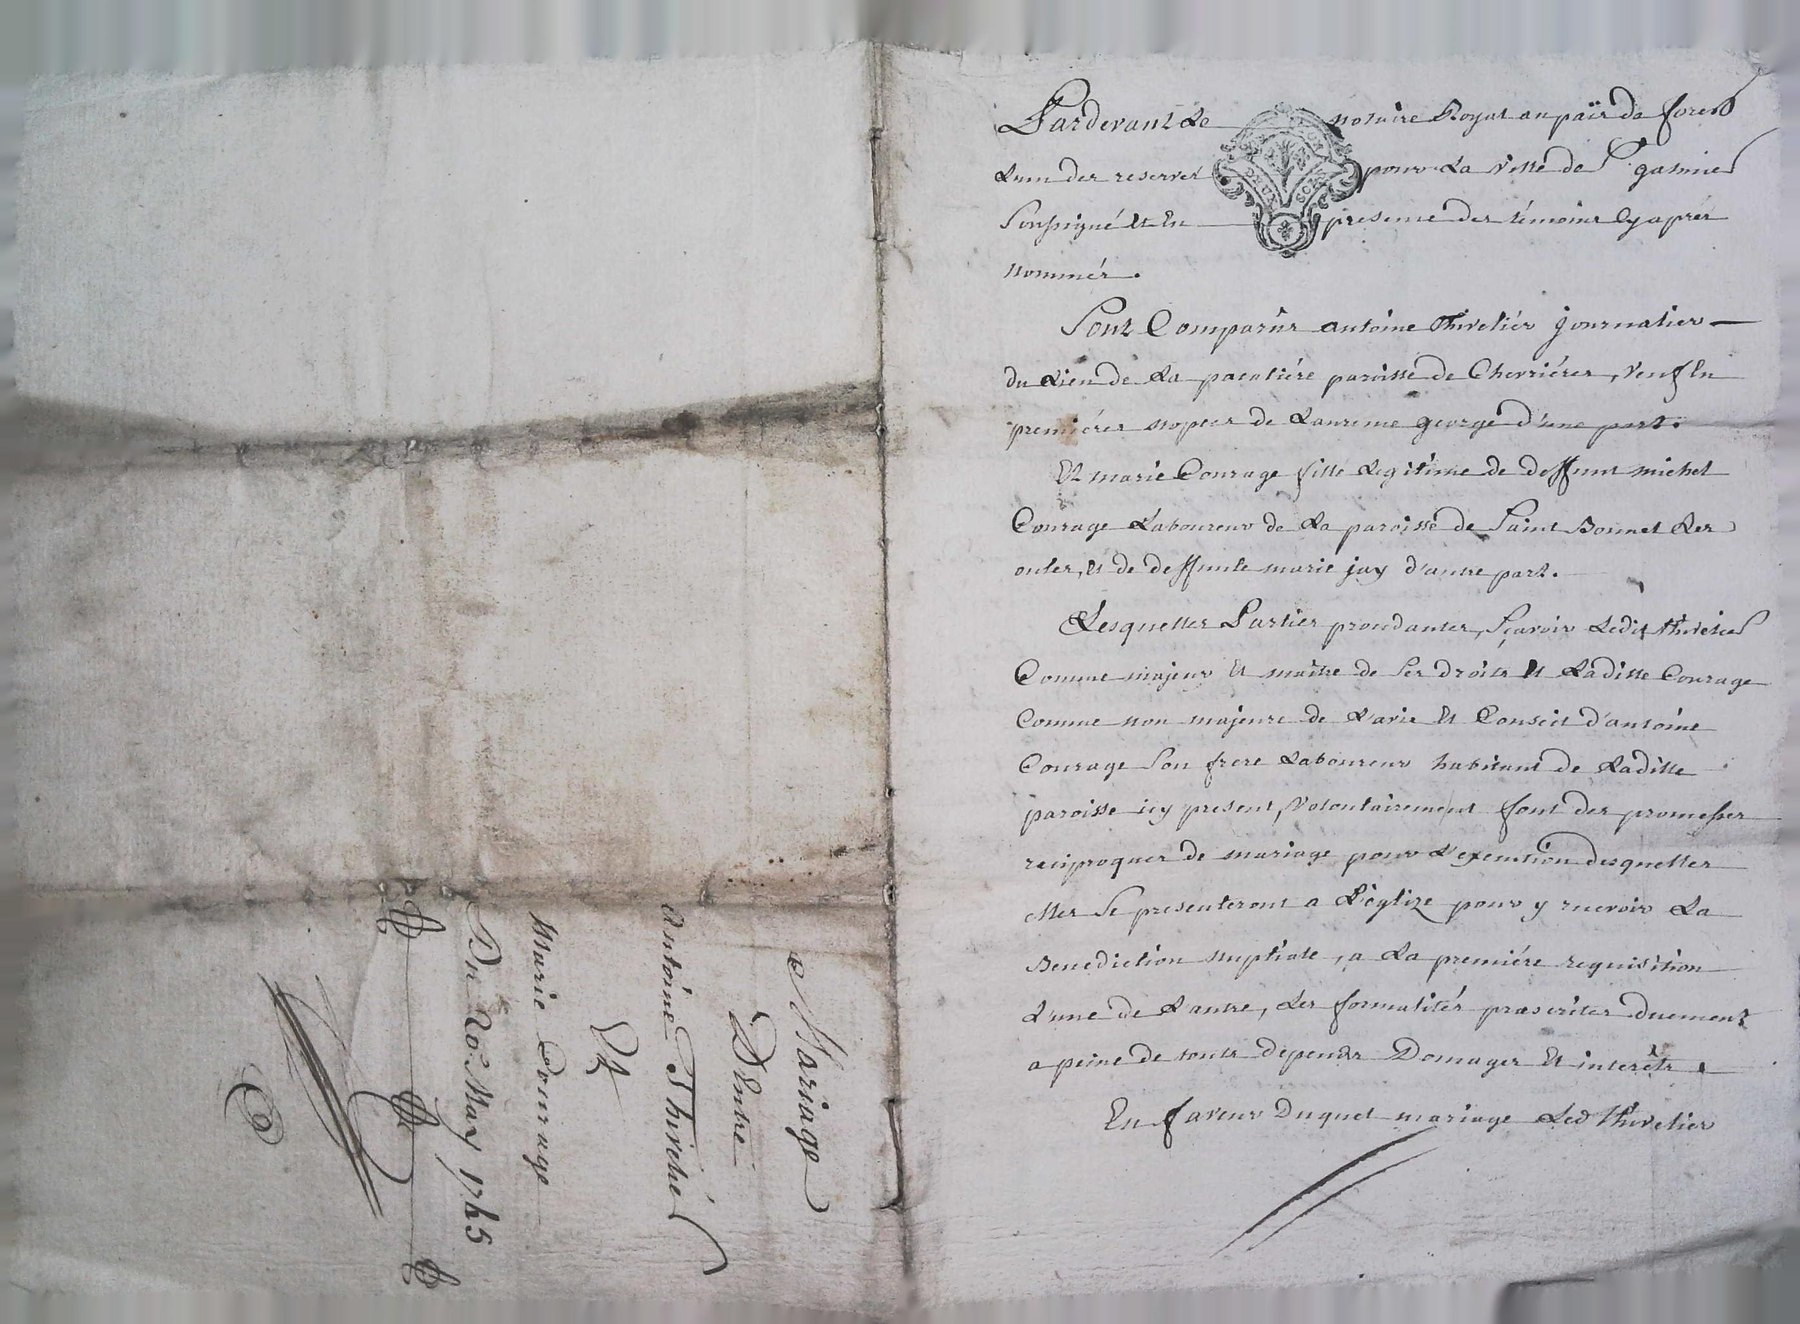 Mariage
D'Entre
Antoine Thivelié
Et
Marie Courage
Du 20e May 1745
Pardevant Le notaire Royal au païs de forest
L'un des reservés pour La ville de St galmier
Soussigné Et En presence des témoins Cy après
nommés.
Sont Comparus antoine thivelier journalier
du Lieu de La paculiére paroisse de Chevriéres, veuf En
premiéres nopces de Laurence george d'une part.
Et marie Courage fille Legitime de deffunt michel
Courage Laboureur de La paroisse de Saint Bonnet Les
oules, Et de deffunte marie jay d'autre part.
Lesquelles Parties procedantes, Sçavoir Ledit thivelier
Comme majeur Et maitre de Ses droits Et Laditte Courage
Comme non majeure de L'avis Et Conseil d'antoine
Courage Son frere Laboureur habitant de Laditte
paroisse icy present, Volontairement font des promesses
reciproques de mariage pour L'execution desquelles
elles Se presenteront a L'églize pour y recevoir La
Benediction nuptiale, a La premiére requisition
L'une de L'autre, Les formalités prescrites duement
a peine de touts depends Domages Et interêts.
En faveur Duquel mariage Led thivelier